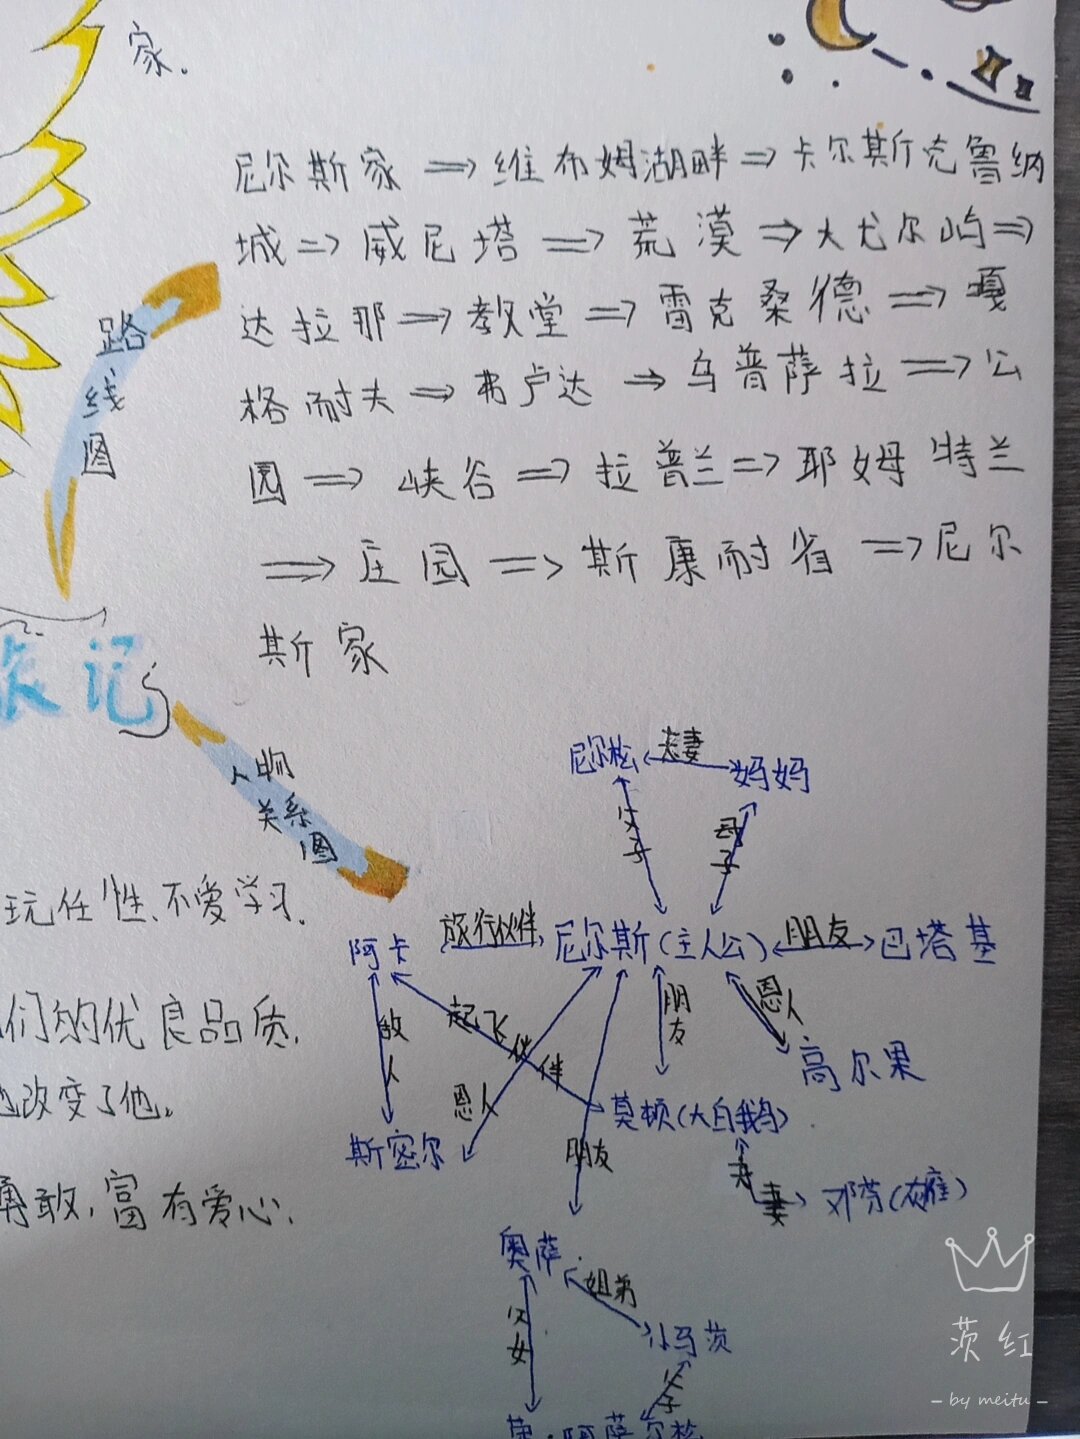 家.
尼尔斯家⇒维布姆湖畔⇒卡尔斯克鲁纳
城⇒威尼塔⇒荒漠⇒大尤尔屿⇒
达拉那⇒教堂⇒雷克桑德⇒嘎
格耐夫⇒弗卢达⇒乌普萨拉⇒公
园⇒峡谷⇒拉普兰⇒耶姆特兰
⇒庄园⇒斯康耐省⇒尼尔
斯家
路
线
图
旅记
人物
关系
图
尼尔松
夫妻
妈妈
父子
母子
玩任性、不爱学习.
阿卡
旅行伙伴
尼尔斯(主人公)
朋友
巴塔基
们的优良品质.
敌人
起飞伙伴
恩人
朋友
恩人
高尔果
也改变了他。
斯密尔
莫顿(大白鹅)
朋友
夫妻
邓芬(雁)
勇敢,富有爱心.
奥萨
姐弟
父女
小马茨
父子
阿萨尔松
茨红
- by meitu -